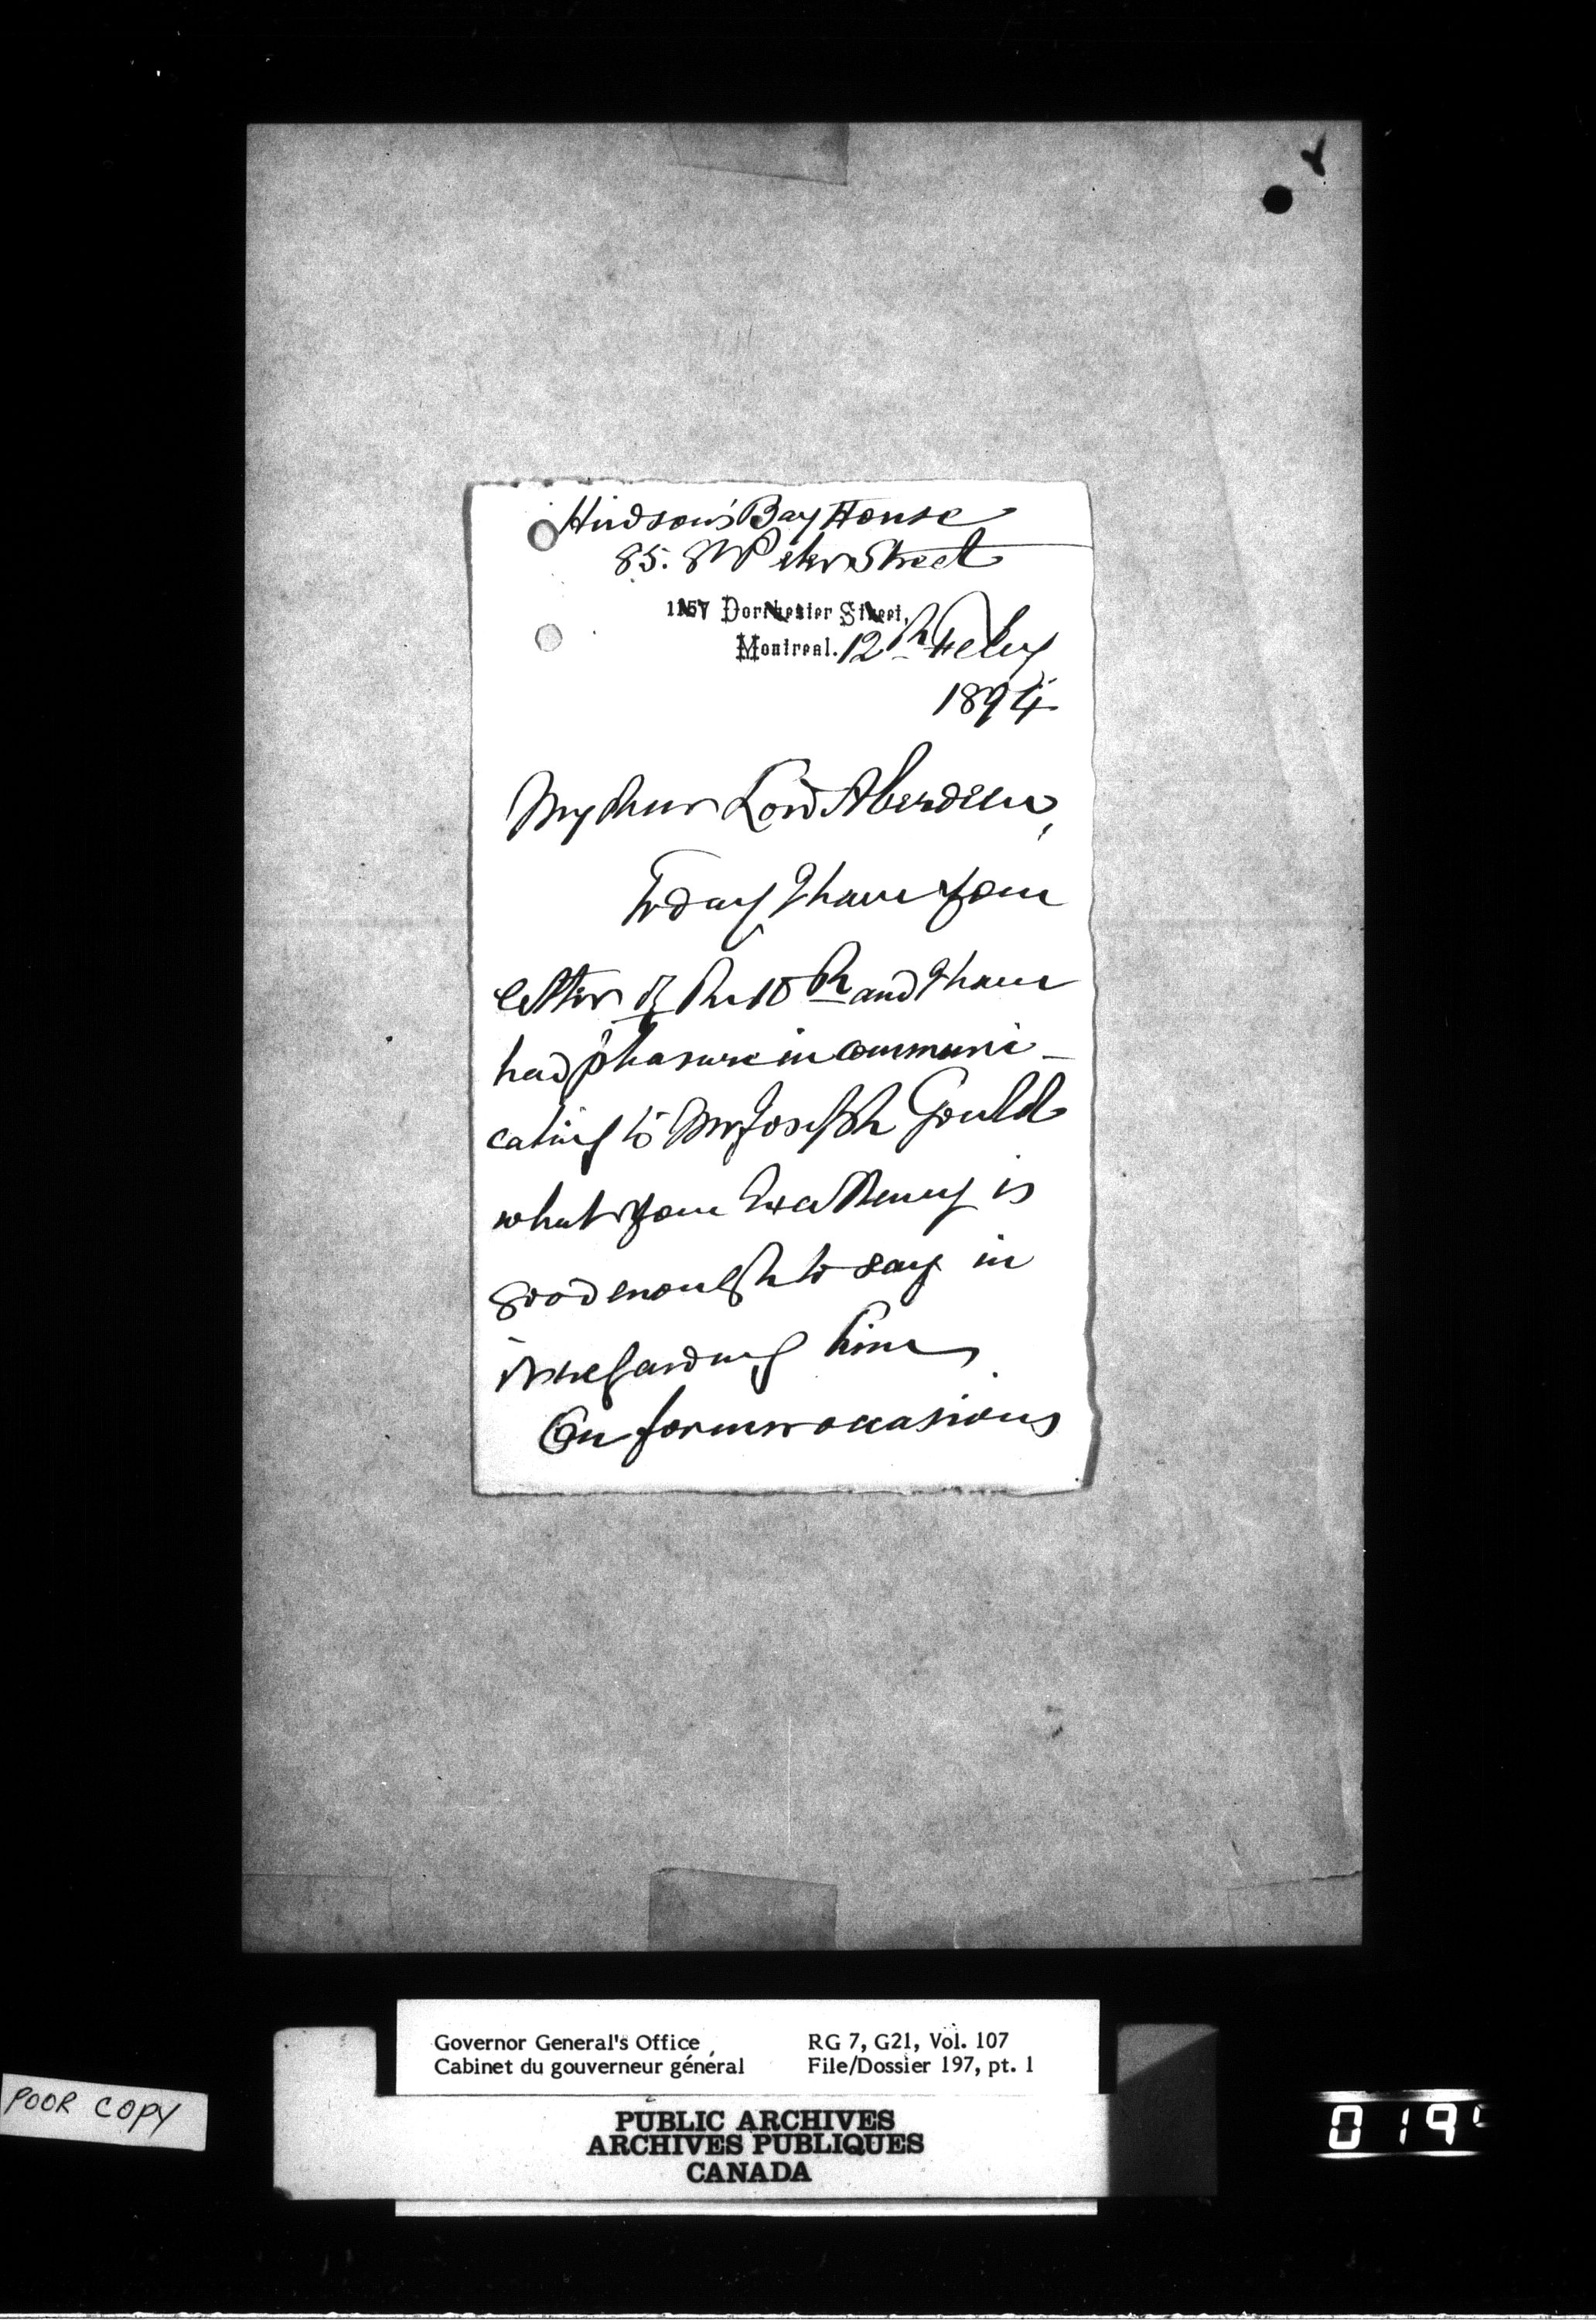 Hudson's Bay House
85. St Peter Street
1157 Dorchester Street,
Montreal. 12th Feby
1894
My dear Lord Aberdeen,
Today I have your
letter of the 10th and I have
had pleasure in communi-
cating to Mr Joseph Gould
what your Excellency is
good enough to say in
regarding him,
On former occasions
Governor General's Office
Cabinet du gouverneur général
RG 7, G21, Vol. 107
File/Dossier 197, pt. 1
POOR COPY
PUBLIC ARCHIVES
ARCHIVES PUBLIQUES
CANADA
019